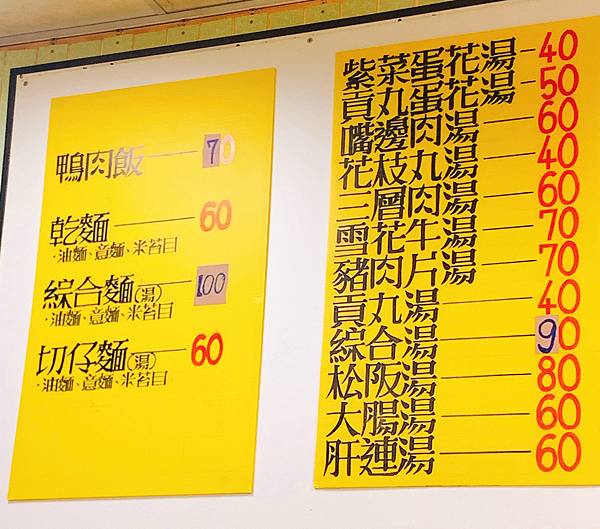 鴨肉飯 70
乾麵 60
·油麵、意麵、米苔目
綜合麵(湯) 100
·油麵、意麵、米苔目
切仔麵(湯) 60
·油麵、意麵、米苔目
紫菜蛋花湯 40
貢丸蛋花湯 50
嘴邊肉湯 60
花枝丸湯 40
三層肉湯 60
雪花牛湯 70
豬肉片湯 70
貢丸湯 40
綜合湯 90
松阪湯 80
大腸湯 60
肝連湯 60